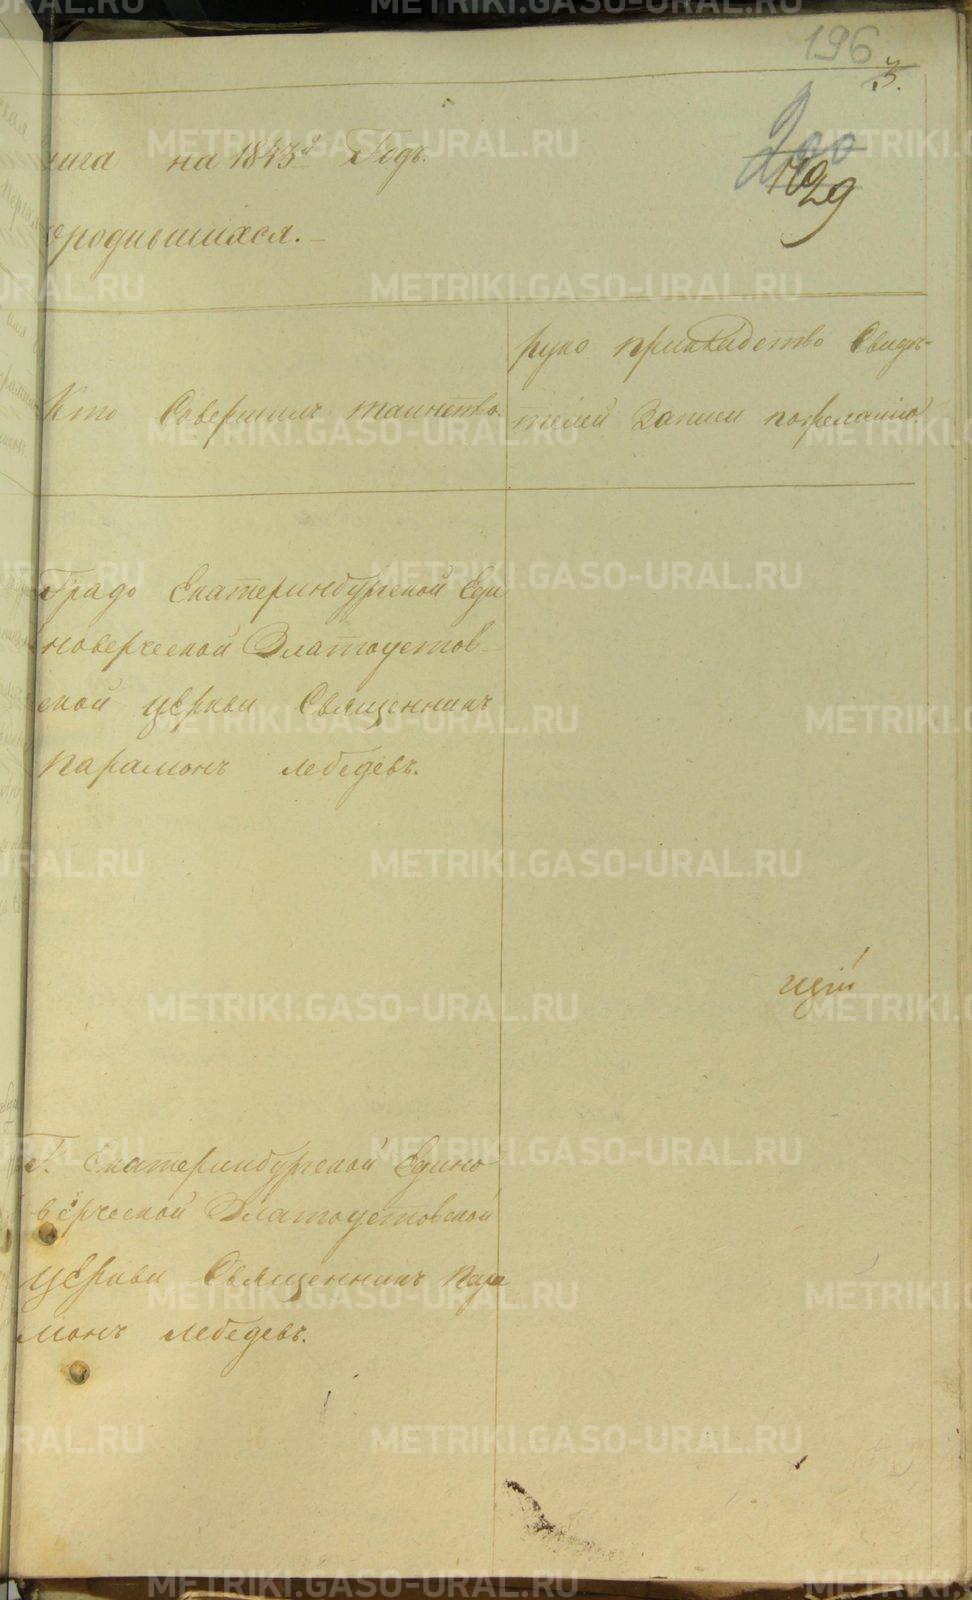 196
3.
200
29
нига на 1843й Годъ.
ородившихся.
Кто Совершилъ таинство.
руко прикладство Свидѣ-
телей Записи пожеланію.
Градо Екатеринбургской Еди
новерческой Златоустов-
ской церкви Священникъ
парамонъ лебедевъ.
щій
Г. Екатеринбургской Едино
верческой Златоустовской
церкви Священникъ Пара
монъ лебедевъ.
METRIKI.GASO-URAL.RU